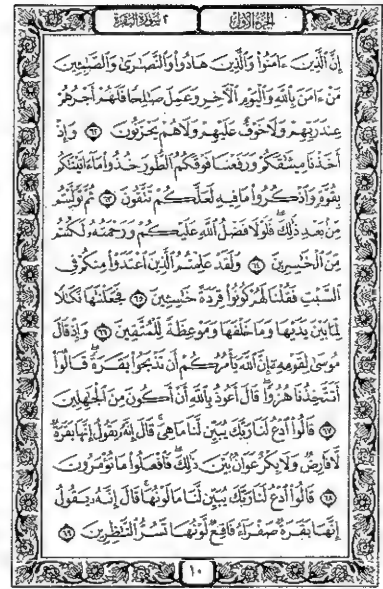 الجزء الأول
٢ سورة البقرة
إِنَّ ٱلَّذِينَ ءَامَنُوا۟ وَٱلَّذِينَ هَادُوا۟ وَٱلنَّصَٰرَىٰ وَٱلصَّٰبِـِٔينَ
مَنْ ءَامَنَ بِٱللَّهِ وَٱلْيَوْمِ ٱلْءَاخِرِ وَعَمِلَ صَٰلِحًا فَلَهُمْ أَجْرُهُمْ
عِندَ رَبِّهِمْ وَلَا خَوْفٌ عَلَيْهِمْ وَلَا هُمْ يَحْزَنُونَ ٦٢ وَإِذْ
أَخَذْنَا مِيثَٰقَكُمْ وَرَفَعْنَا فَوْقَكُمُ ٱلطُّورَ خُذُوا۟ مَآ ءَاتَيْنَٰكُم
بِقُوَّةٍ وَٱذْكُرُوا۟ مَا فِيهِ لَعَلَّكُمْ تَتَّقُونَ ٦٣ ثُمَّ تَوَلَّيْتُم
مِّنۢ بَعْدِ ذَٰلِكَ ۖ فَلَوْلَا فَضْلُ ٱللَّهِ عَلَيْكُمْ وَرَحْمَتُهُۥ لَكُنتُم
مِّنَ ٱلْخَٰسِرِينَ ٦٤ وَلَقَدْ عَلِمْتُمُ ٱلَّذِينَ ٱعْتَدَوْا۟ مِنكُمْ فِى
ٱلسَّبْتِ فَقُلْنَا لَهُمْ كُونُوا۟ قِرَدَةً خَٰسِـِٔينَ ٦٥ فَجَعَلْنَٰهَا نَكَٰلًا
لِّمَا بَيْنَ يَدَيْهَا وَمَا خَلْفَهَا وَمَوْعِظَةً لِّلْمُتَّقِينَ ٦٦ وَإِذْ قَالَ
مُوسَىٰ لِقَوْمِهِۦٓ إِنَّ ٱللَّهَ يَأْمُرُكُمْ أَن تَذْبَحُوا۟ بَقَرَةً ۖ قَالُوٓا۟
أَتَتَّخِذُنَا هُزُوًا ۖ قَالَ أَعُوذُ بِٱللَّهِ أَنْ أَكُونَ مِنَ ٱلْجَٰهِلِينَ
٦٧ قَالُوا۟ ٱدْعُ لَنَا رَبَّكَ يُبَيِّن لَّنَا مَا هِىَ ۚ قَالَ إِنَّهُۥ يَقُولُ إِنَّهَا بَقَرَةٌ
لَّا فَارِضٌ وَلَا بِكْرٌ عَوَانٌۢ بَيْنَ ذَٰلِكَ ۖ فَٱفْعَلُوا۟ مَا تُؤْمَرُونَ
٦٨ قَالُوا۟ ٱدْعُ لَنَا رَبَّكَ يُبَيِّن لَّنَا مَا لَوْنُهَا ۚ قَالَ إِنَّهُۥ يَقُولُ
إِنَّهَا بَقَرَةٌ صَفْرَآءُ فَاقِعٌ لَّوْنُهَا تَسُرُّ ٱلنَّٰظِرِينَ ٦٩
١٠